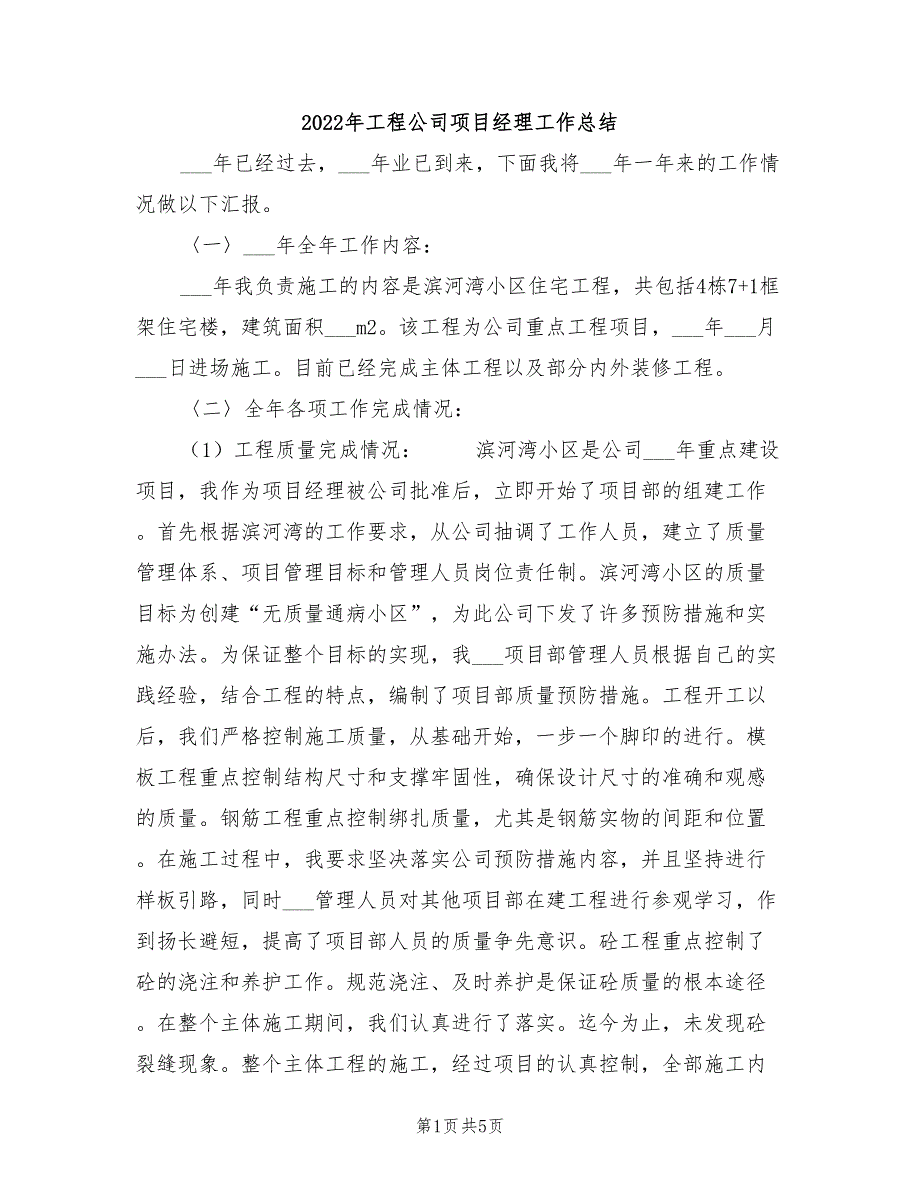 2022年工程公司项目经理工作总结
___年已经过去，___年业已到来，下面我将___年一年来的工作情
况做以下汇报。
〈一〉___年全年工作内容：
___年我负责施工的内容是滨河湾小区住宅工程，共包括4栋7+1框
架住宅楼，建筑面积___m2。该工程为公司重点工程项目，___年___月
___日进场施工。目前已经完成主体工程以及部分内外装修工程。
〈二〉全年各项工作完成情况：
（1）工程质量完成情况： 滨河湾小区是公司___年重点建设
项目，我作为项目经理被公司批准后，立即开始了项目部的组建工作
。首先根据滨河湾的工作要求，从公司抽调了工作人员，建立了质量
管理体系、项目管理目标和管理人员岗位责任制。滨河湾小区的质量
目标为创建“无质量通病小区”，为此公司下发了许多预防措施和实
施办法。为保证整个目标的实现，我___项目部管理人员根据自己的实
践经验，结合工程的特点，编制了项目部质量预防措施。工程开工以
后，我们严格控制施工质量，从基础开始，一步一个脚印的进行。模
板工程重点控制结构尺寸和支撑牢固性，确保设计尺寸的准确和观感
的质量。钢筋工程重点控制绑扎质量，尤其是钢筋实物的间距和位置
。在施工过程中，我要求坚决落实公司预防措施内容，并且坚持进行
样板引路，同时___管理人员对其他项目部在建工程进行参观学习，作
到扬长避短，提高了项目部人员的质量争先意识。砼工程重点控制了
砼的浇注和养护工作。规范浇注、及时养护是保证砼质量的根本途径
。在整个主体施工期间，我们认真进行了落实。迄今为止，未发现砼
裂缝现象。整个主体工程的施工，经过项目的认真控制，全部施工内
第1页共5页